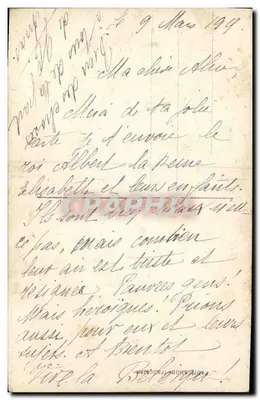 Le 9 Mars 191
Ma chère Alice,
Merci de ta jolie
carte je t'envoie le
roi Albert la Reine
Elisabeth et leurs enfants.
Ils sont très beaux n'est
ce pas, mais combien
leur air est triste et
résigné. Pauvres gens!
Mais héroïques! Prions
aussi pour eux et leurs
sujets. A Bientôt
Vive la Belgique!